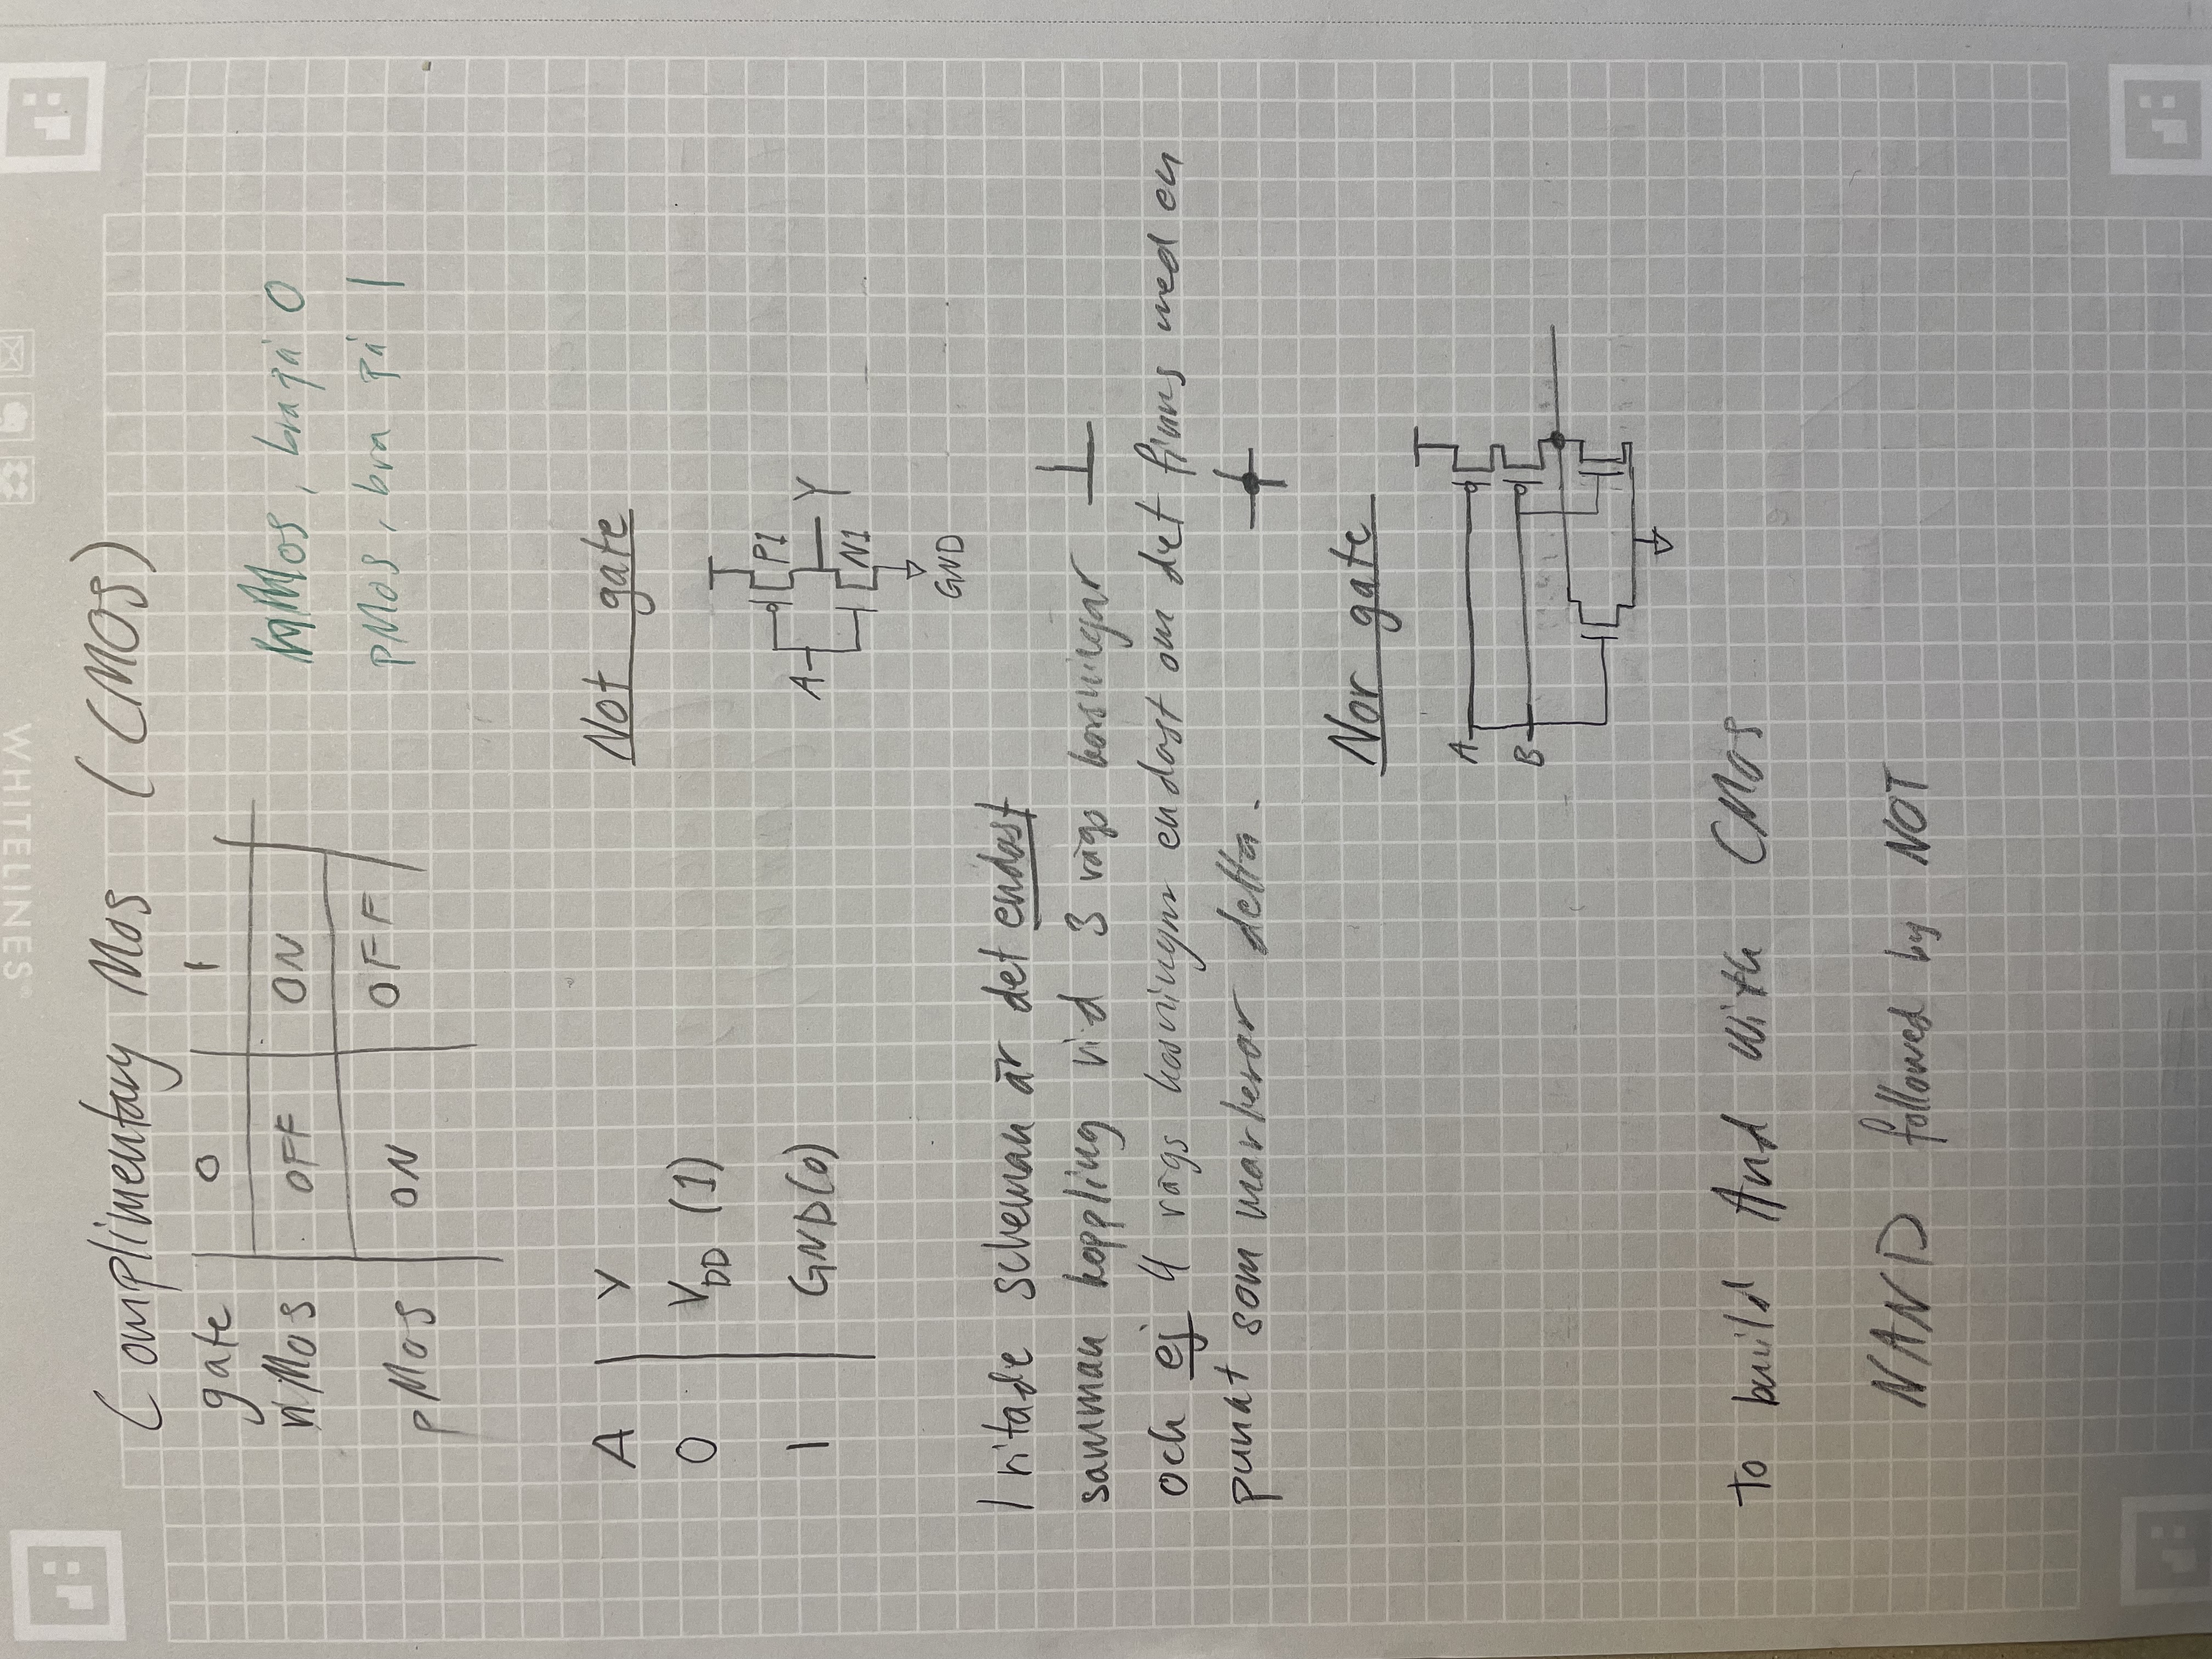 WHITELINES®
Complimentary Mos (CMOS)
gate 0 1
nMos OFF ON
pMos ON OFF
nMos, bra på 0
pMos, bra på 1
A Y
0 VDD (1)
1 GND(0)
Not gate
P1
A Y
N1
GND
I ritade scheman är det endast
samman koppling vid 3 vägs korsningar
och ej 4 vägs korsningar endast om det finns med en
punkt som markerar detta.
Nor gate
A
B
To build And with CMos
NAND followed by NOT